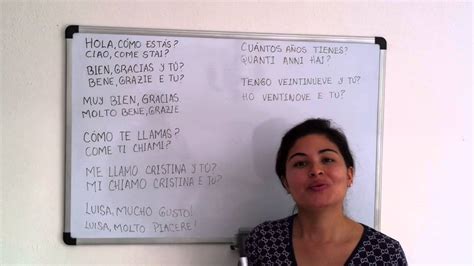 HOLA, CÓMO ESTÁS?
CIAO, COME STAI?
BIEN, GRACIAS Y TÚ?
BENE, GRAZIE E TU?
MUY BIEN, GRACIAS
MOLTO BENE, GRAZIE
CÓMO TE LLAMAS?
COME TI CHIAMI?
ME LLAMO CRISTINA Y TÚ?
MI CHIAMO CRISTINA E TU?
LUISA, MUCHO GUSTO!
LUISA, MOLTO PIACERE!
CUÁNTOS AÑOS TIENES?
QUANTI ANNI HAI?
TENGO VEINTINUEVE Y TÚ?
HO VENTINOVE E TU?